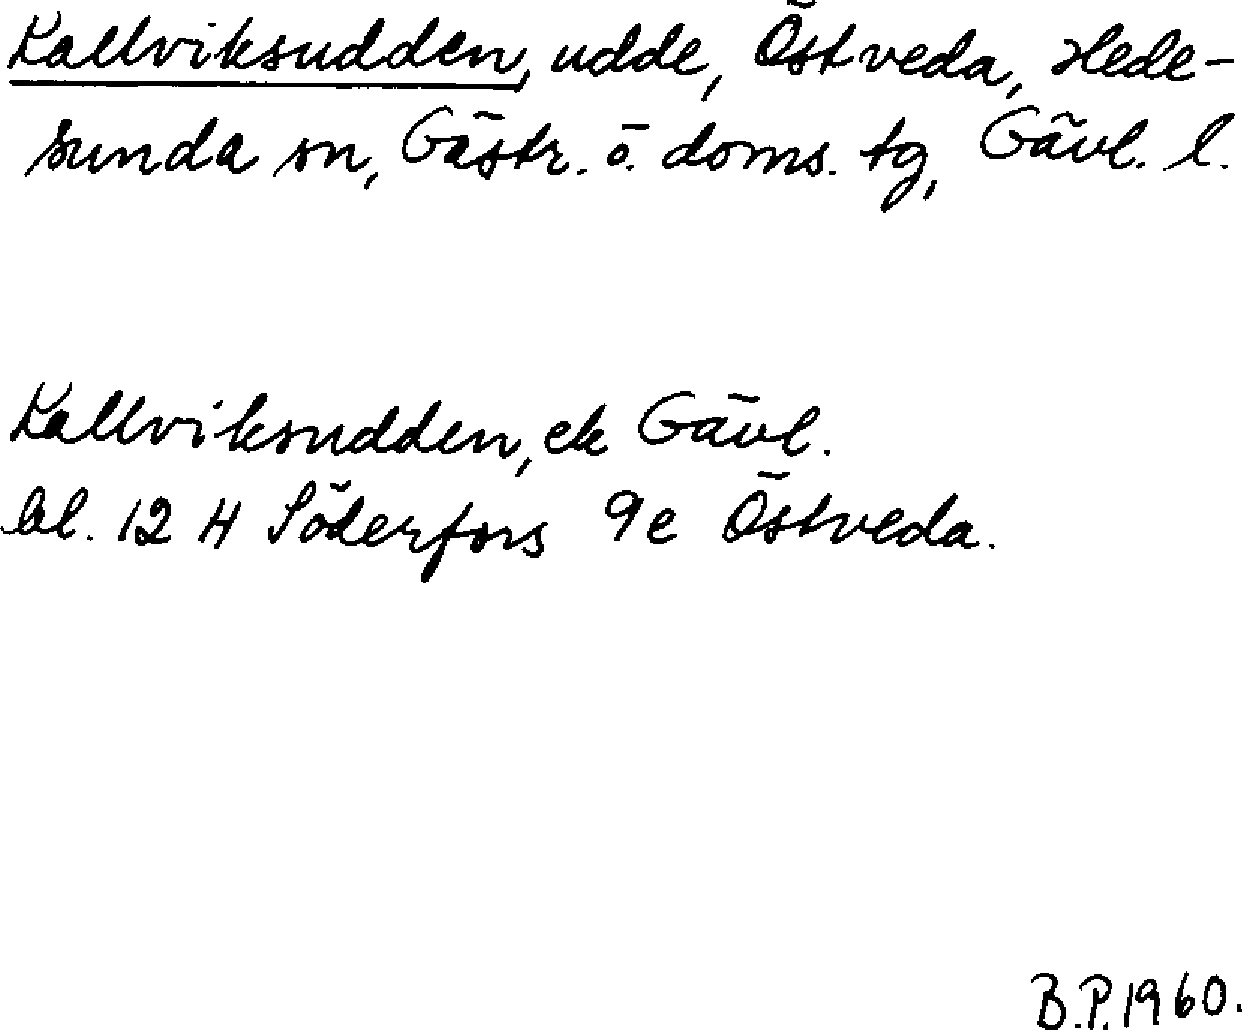 Kallviksudden, udde, Östveda, Hede-
sunda sn, Gästr. ö. doms. tg, Gävl. l.
Kallviksudden, ek Gävl.
bl. 12 H Söderfors 9e Östveda.
B.P. 1960.